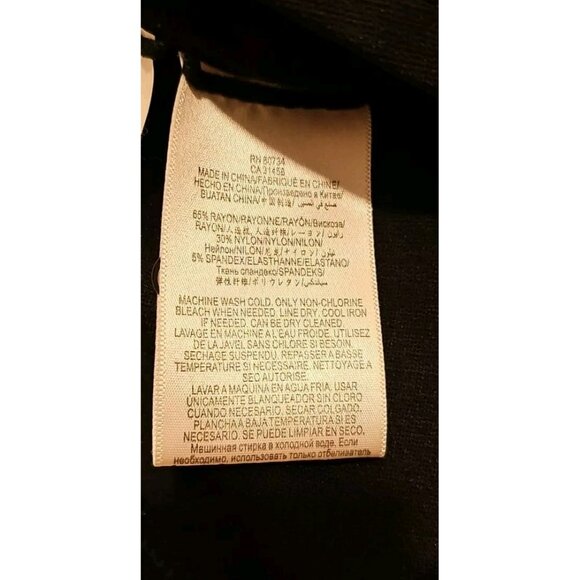 RN 80734
CA 31458
MADE IN CHINA/FABRIQUÉ EN CHINE/
HECHO EN CHINA/Произведено в Китае/
BUATAN CHINA/中国制造/صنع في الصين
65% RAYON/RAYONNE/RAYÓN/Вискоза/
RAYON/人造棉, 人造纤维/レーヨン/رايون
30% NYLON/NYLON/NILON/
Нейлон/NILON/尼龙/ナイロン/نايلون
5% SPANDEX/ELASTHANNE/ELASTANO/
Ткань спандекс/SPANDEKS/
弹性纤维/ポリウレタン/سباندكس
MACHINE WASH COLD. ONLY NON-CHLORINE
BLEACH WHEN NEEDED. LINE DRY. COOL IRON
IF NEEDED. CAN BE DRY CLEANED.
LAVAGE EN MACHINE A L'EAU FROIDE. UTILISEZ
DE LA JAVEL SANS CHLORE SI BESOIN.
SECHAGE SUSPENDU. REPASSER A BASSE
TEMPERATURE SI NECESSAIRE. NETTOYAGE A
SEC AUTORISE.
LAVAR A MAQUINA EN AGUA FRIA. USAR
UNICAMENTE BLANQUEADOR SIN CLORO
CUANDO NECESARIO. SECAR COLGADO.
PLANCHA A BAJA TEMPERATURA SI ES
NECESARIO. SE PUEDE LIMPIAR EN SECO.
Машинная стирка в холодной воде. Если
необходимо, использовать только отбеливатель